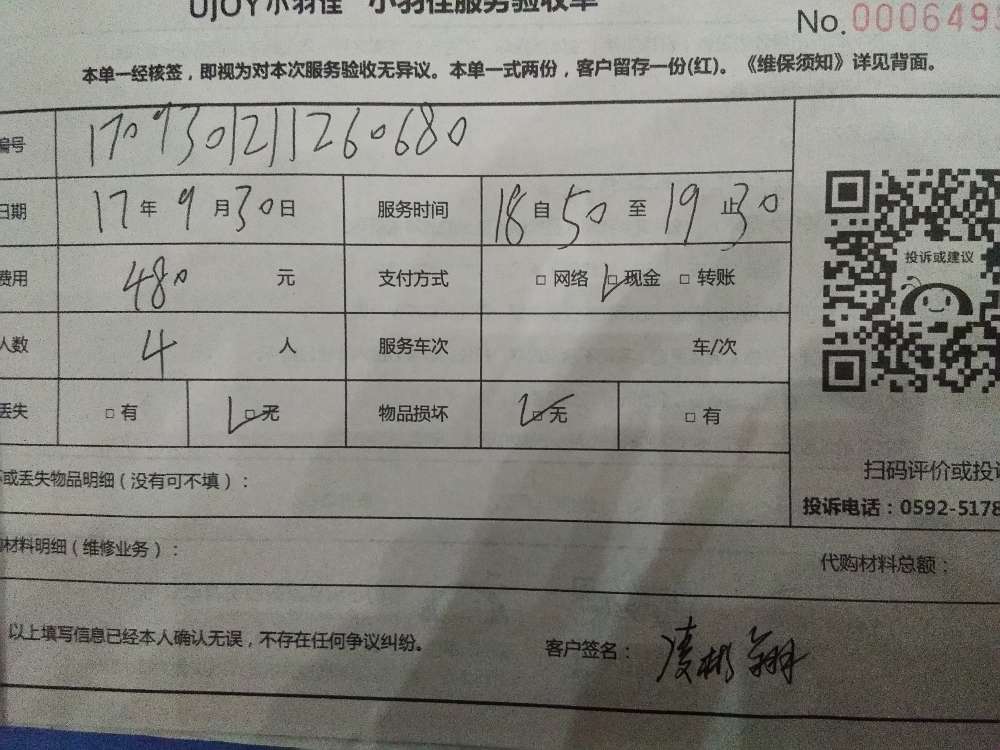 UJOY小羽佳 小羽佳服务验收单
No.000649
本单一经核签，即视为对本次服务验收无异议。本单一式两份，客户留存一份(红)。《维保须知》详见背面。
编号 1709301211260680
日期 17年9月30日 服务时间 18自50至19止30
费用 480 元 支付方式 □ 网络 □ 现金 □ 转账
投诉或建议
人数 4 人 服务车次 车/次
丢失 □ 有 □ 无 物品损坏 □ 无 □ 有
坏或丢失物品明细（没有可不填）：
扫码评价或投诉
投诉电话：0592-5178
材料明细（维修业务）：
代购材料总额：
以上填写信息已经本人确认无误，不存在任何争议纠纷。
客户签名：凌彬翔